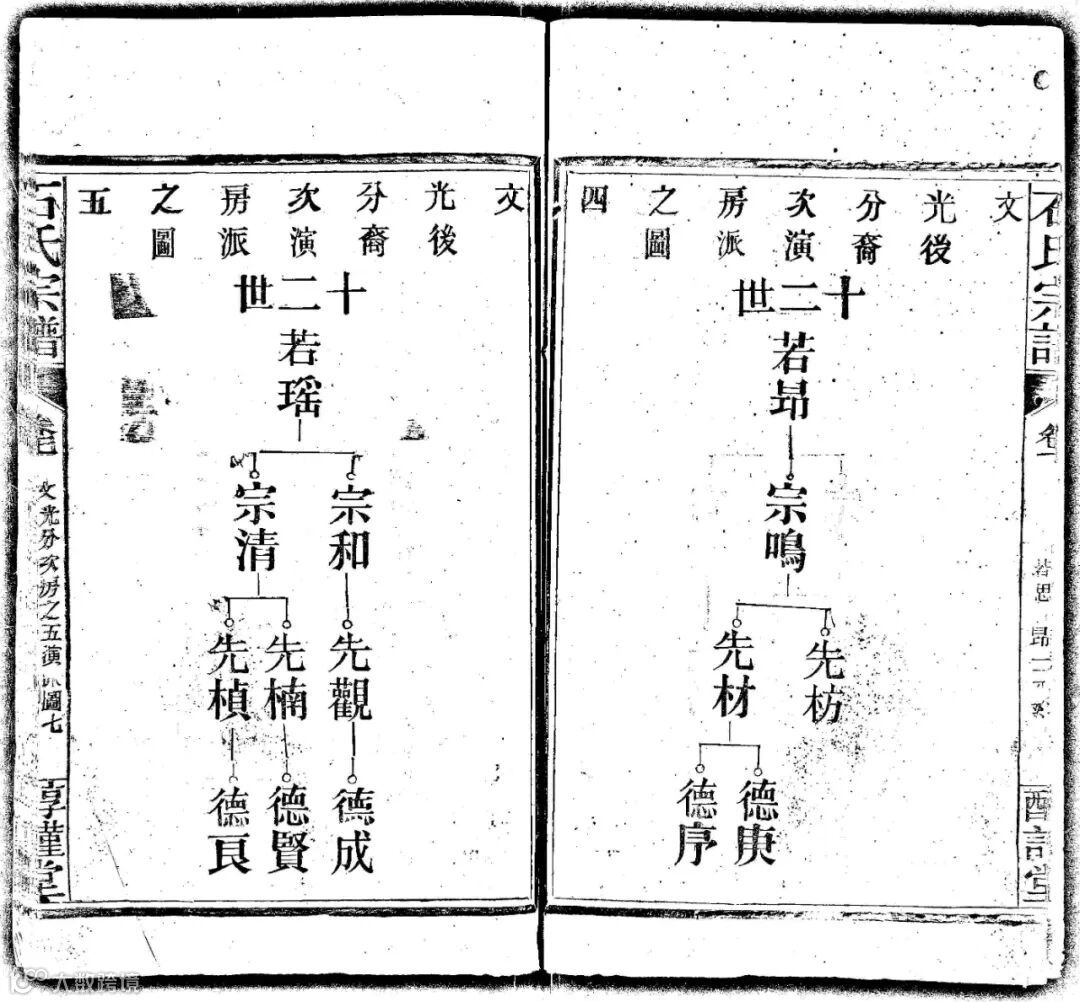 文
光後
分裔
次演
房派
之圖
四
十二世
若昂
宗鳴
先枋
先材
德庚
德序
石氏宗譜
卷一
文
光後
分裔
次演
房派
之圖
五
十二世
若瑶
宗和
宗清
先觀
先楠
先楨
德成
德賢
德良
石氏宗譜
文光分次房之五演派圖七
惇謹堂
大数跨境